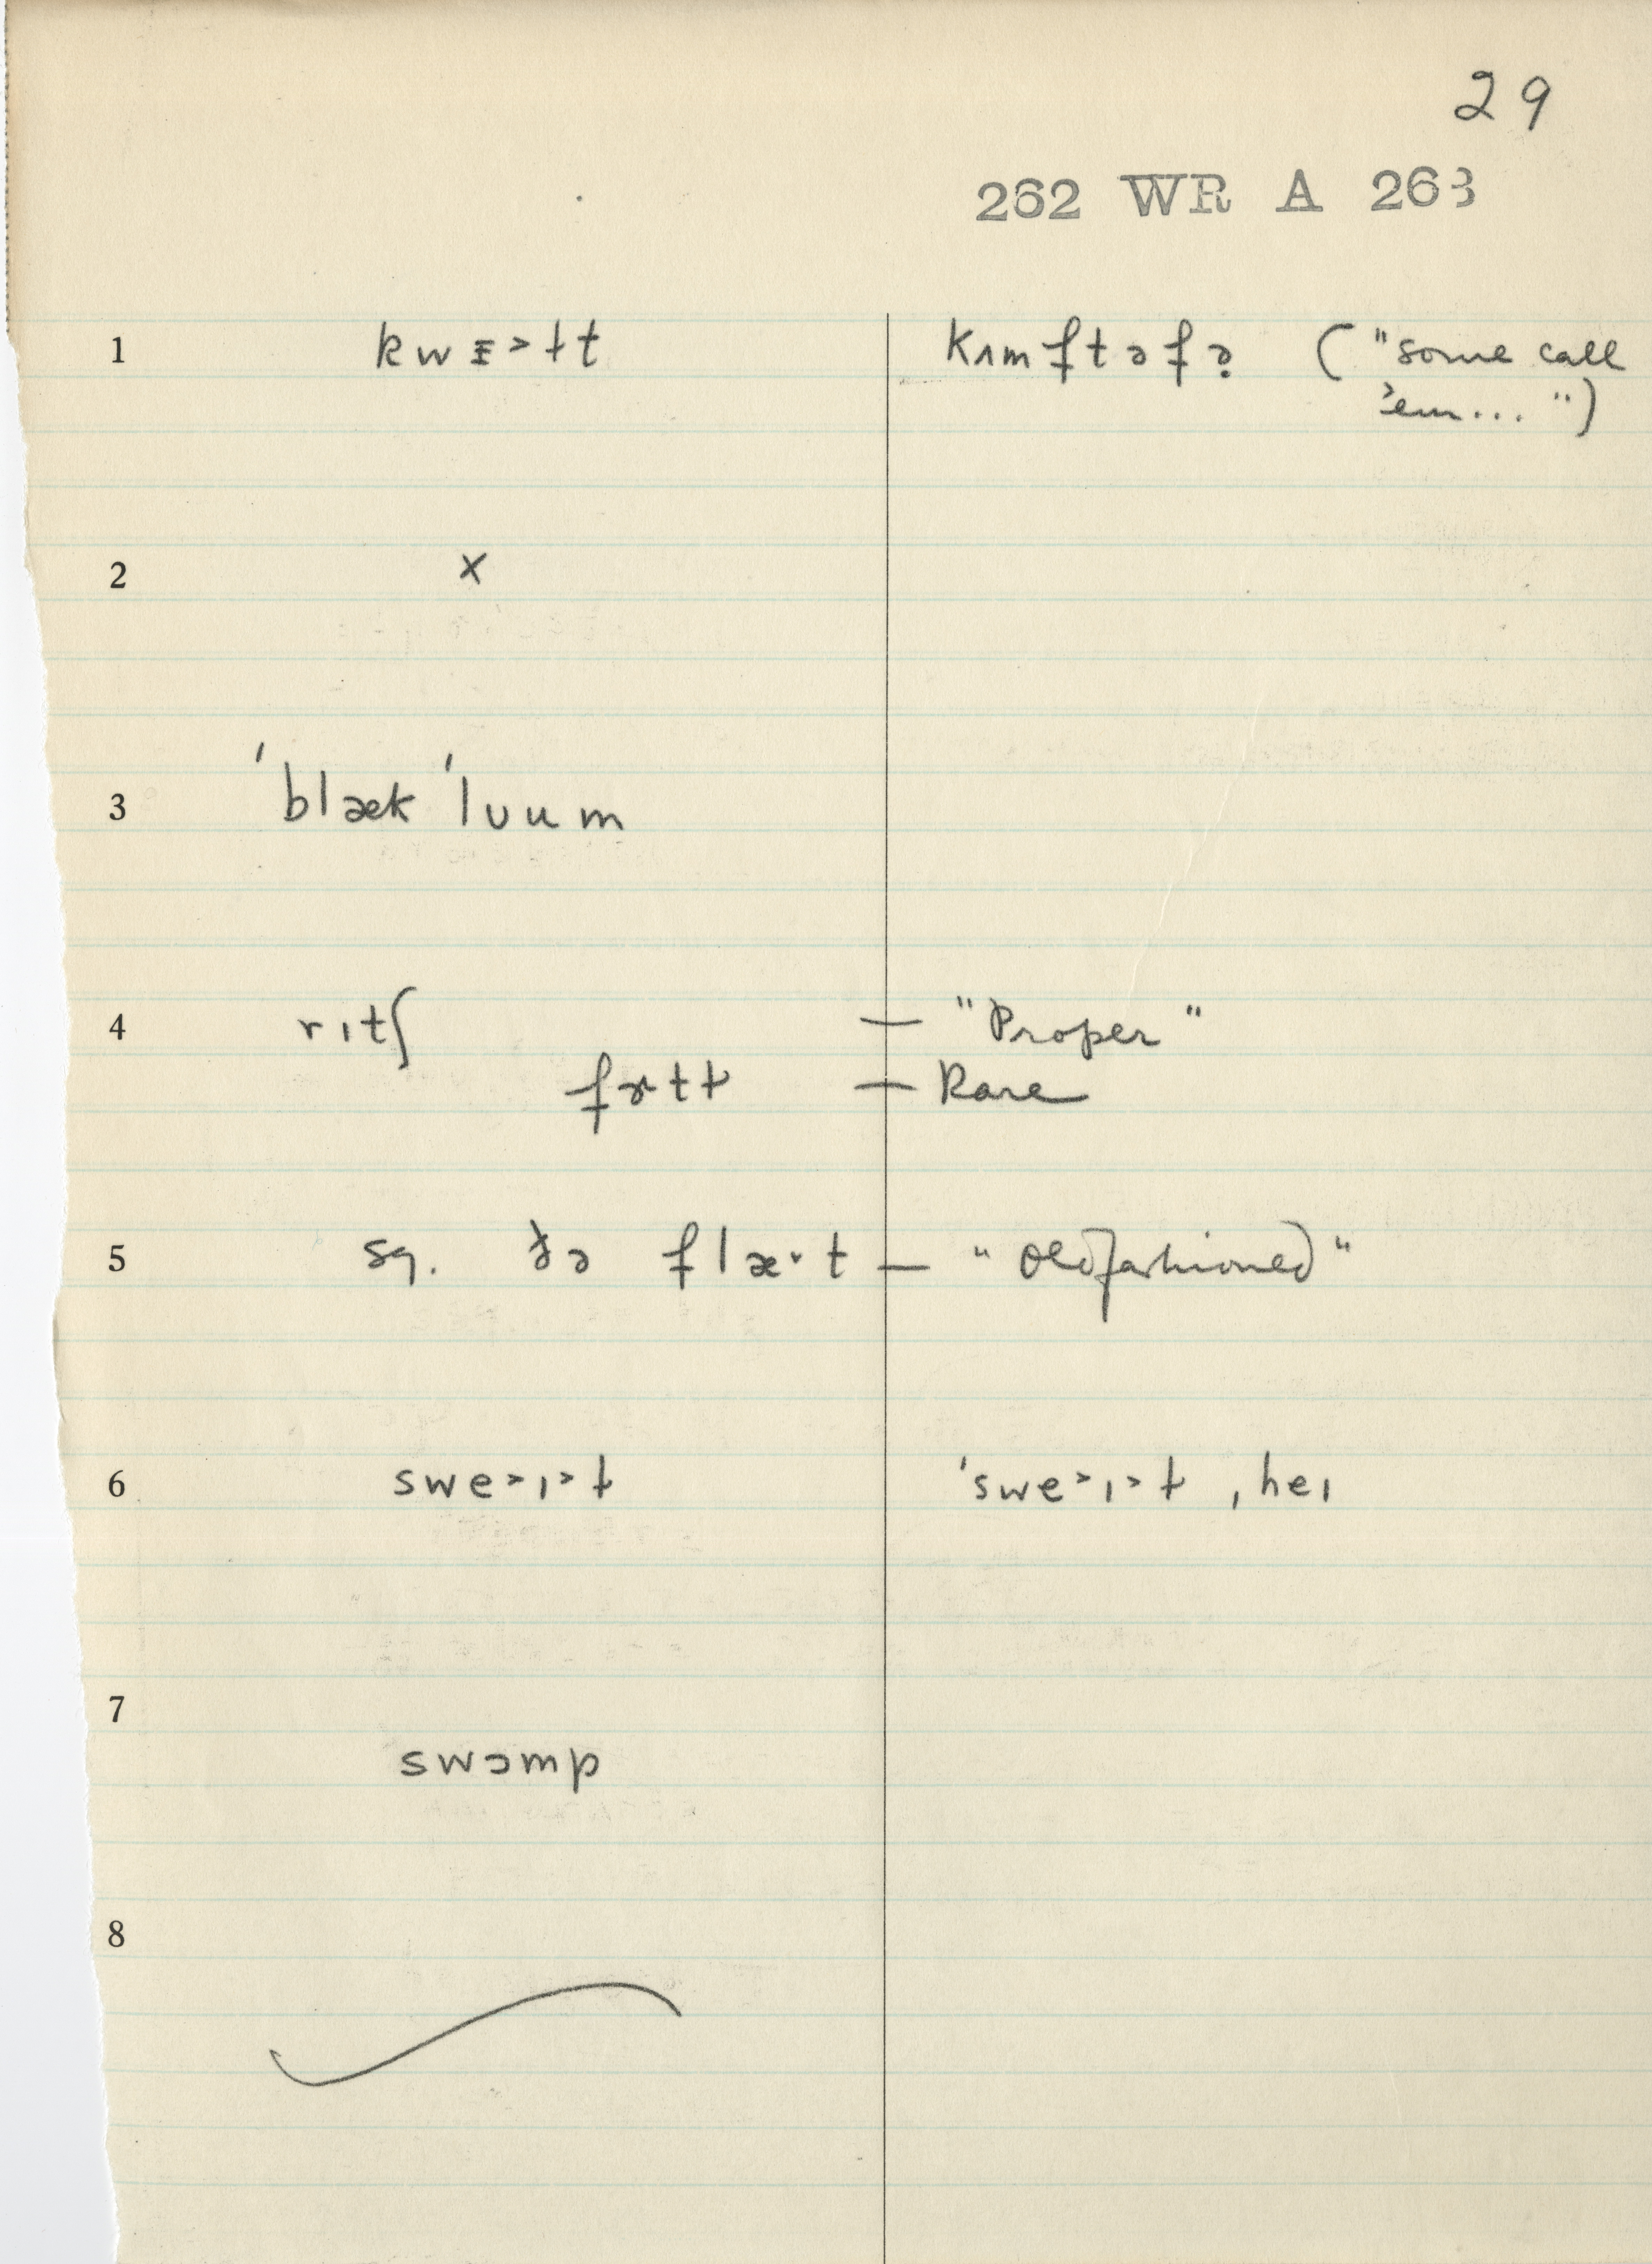 29
262 WR A 263
1 kwɛ>ɫt kʌmftəfə̣ ("some call
'em... ")
2 x
3 'blæk 'lʊum
4 rɪtʃ — "Proper"
fɚtɫ — Rare
5 sq. ðə flæ˞t — "Oldfashioned"
6 swe>ɪ>ɫ 'swe>ɪ>ɫ ˌheɪ
7 swɔmp
8